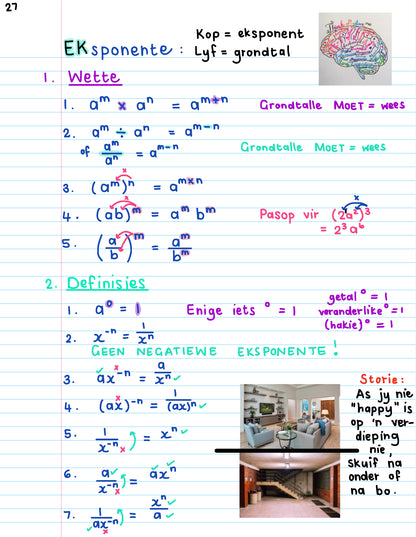 27
Kop = eksponent
EKsponente : Lyf = grondtal
1. Wette
1. aᵐ × aⁿ = aᵐ⁺ⁿ Grondtalle MOET = wees
2. aᵐ ÷ aⁿ = aᵐ⁻ⁿ
of aᵐ/aⁿ = aᵐ⁻ⁿ Grondtalle MOET = wees
x
3. (aᵐ)ⁿ = aᵐˣⁿ
x
4. (ab)ᵐ = aᵐ bᵐ Pasop vir (2a²)³
x
= 2³a⁶
5. (a/b)ᵐ = aᵐ/bᵐ
2. Definisies
1. a⁰ = 1 Enige iets ⁰ = 1
getal⁰ = 1
veranderlike⁰ = 1
(hakie)⁰ = 1
2. x⁻ⁿ = 1/xⁿ
GEEN NEGATIEWE EKSPONENTE !
3. ax⁻ⁿ = a/xⁿ
4. (ax)⁻ⁿ = 1/(ax)ⁿ
5. 1/x⁻ⁿ = xⁿ
6. a/x⁻ⁿ = axⁿ
7. 1/ax⁻ⁿ = xⁿ/a
Storie:
As jy nie
"happy" is
op 'n ver-
dieping
nie,
skuif na
onder of
na bo.